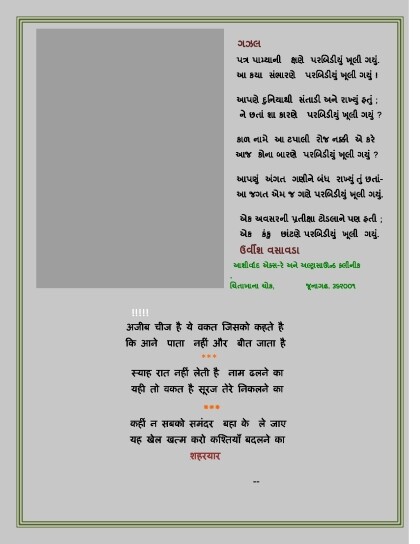 ગઝલ
પત્ર પામ્યાની ક્ષણે પરબિડીયું ખૂલી ગયું.
આ કયા સંભારણે પરબિડીયું ખૂલી ગયું !
આપણે દુનિયાથી સંતાડી અને રાખ્યું હતું ;
ને છતાં શા કારણે પરબિડીયું ખૂલી ગયું ?
કાળ નામે આ ટપાલી રોજ નક્કી એ કરે
આજ કોના બારણે પરબિડીયું ખૂલી ગયું ?
આપણું અંગત ગણીને બંધ રાખ્યું તું છતાં-
આ જગત એમ જ ગણે પરબિડીયું ખૂલી ગયું.
એક અવસરની પ્રતીક્ષા ટોડલાને પણ હતી ;
એક કંકુ છાંટણે પરબિડીયું ખૂલી ગયું.
ઉર્વીશ વસાવડા
આશીર્વાદ એક્સ-રે અને અલ્ટ્રાસાઉન્ડ ક્લીનીક
,
ચિતાખાના ચોક, જૂનાગઢ. ૩૬૨૦૦૧
!!!!!
अजीब चीज है ये वकत जिसको कहते है
कि आने पाता नहीं और बीत जाता है
***
स्याह रात नहीं लेती है नाम ढलने का
यही तो वकत है सूरज तेरे निकलने का
***
कहीं न सबको समंदर बहा के ले जाए
यह खेल खत्म करो कश्तियाँ बदलने का
शहरयार
--